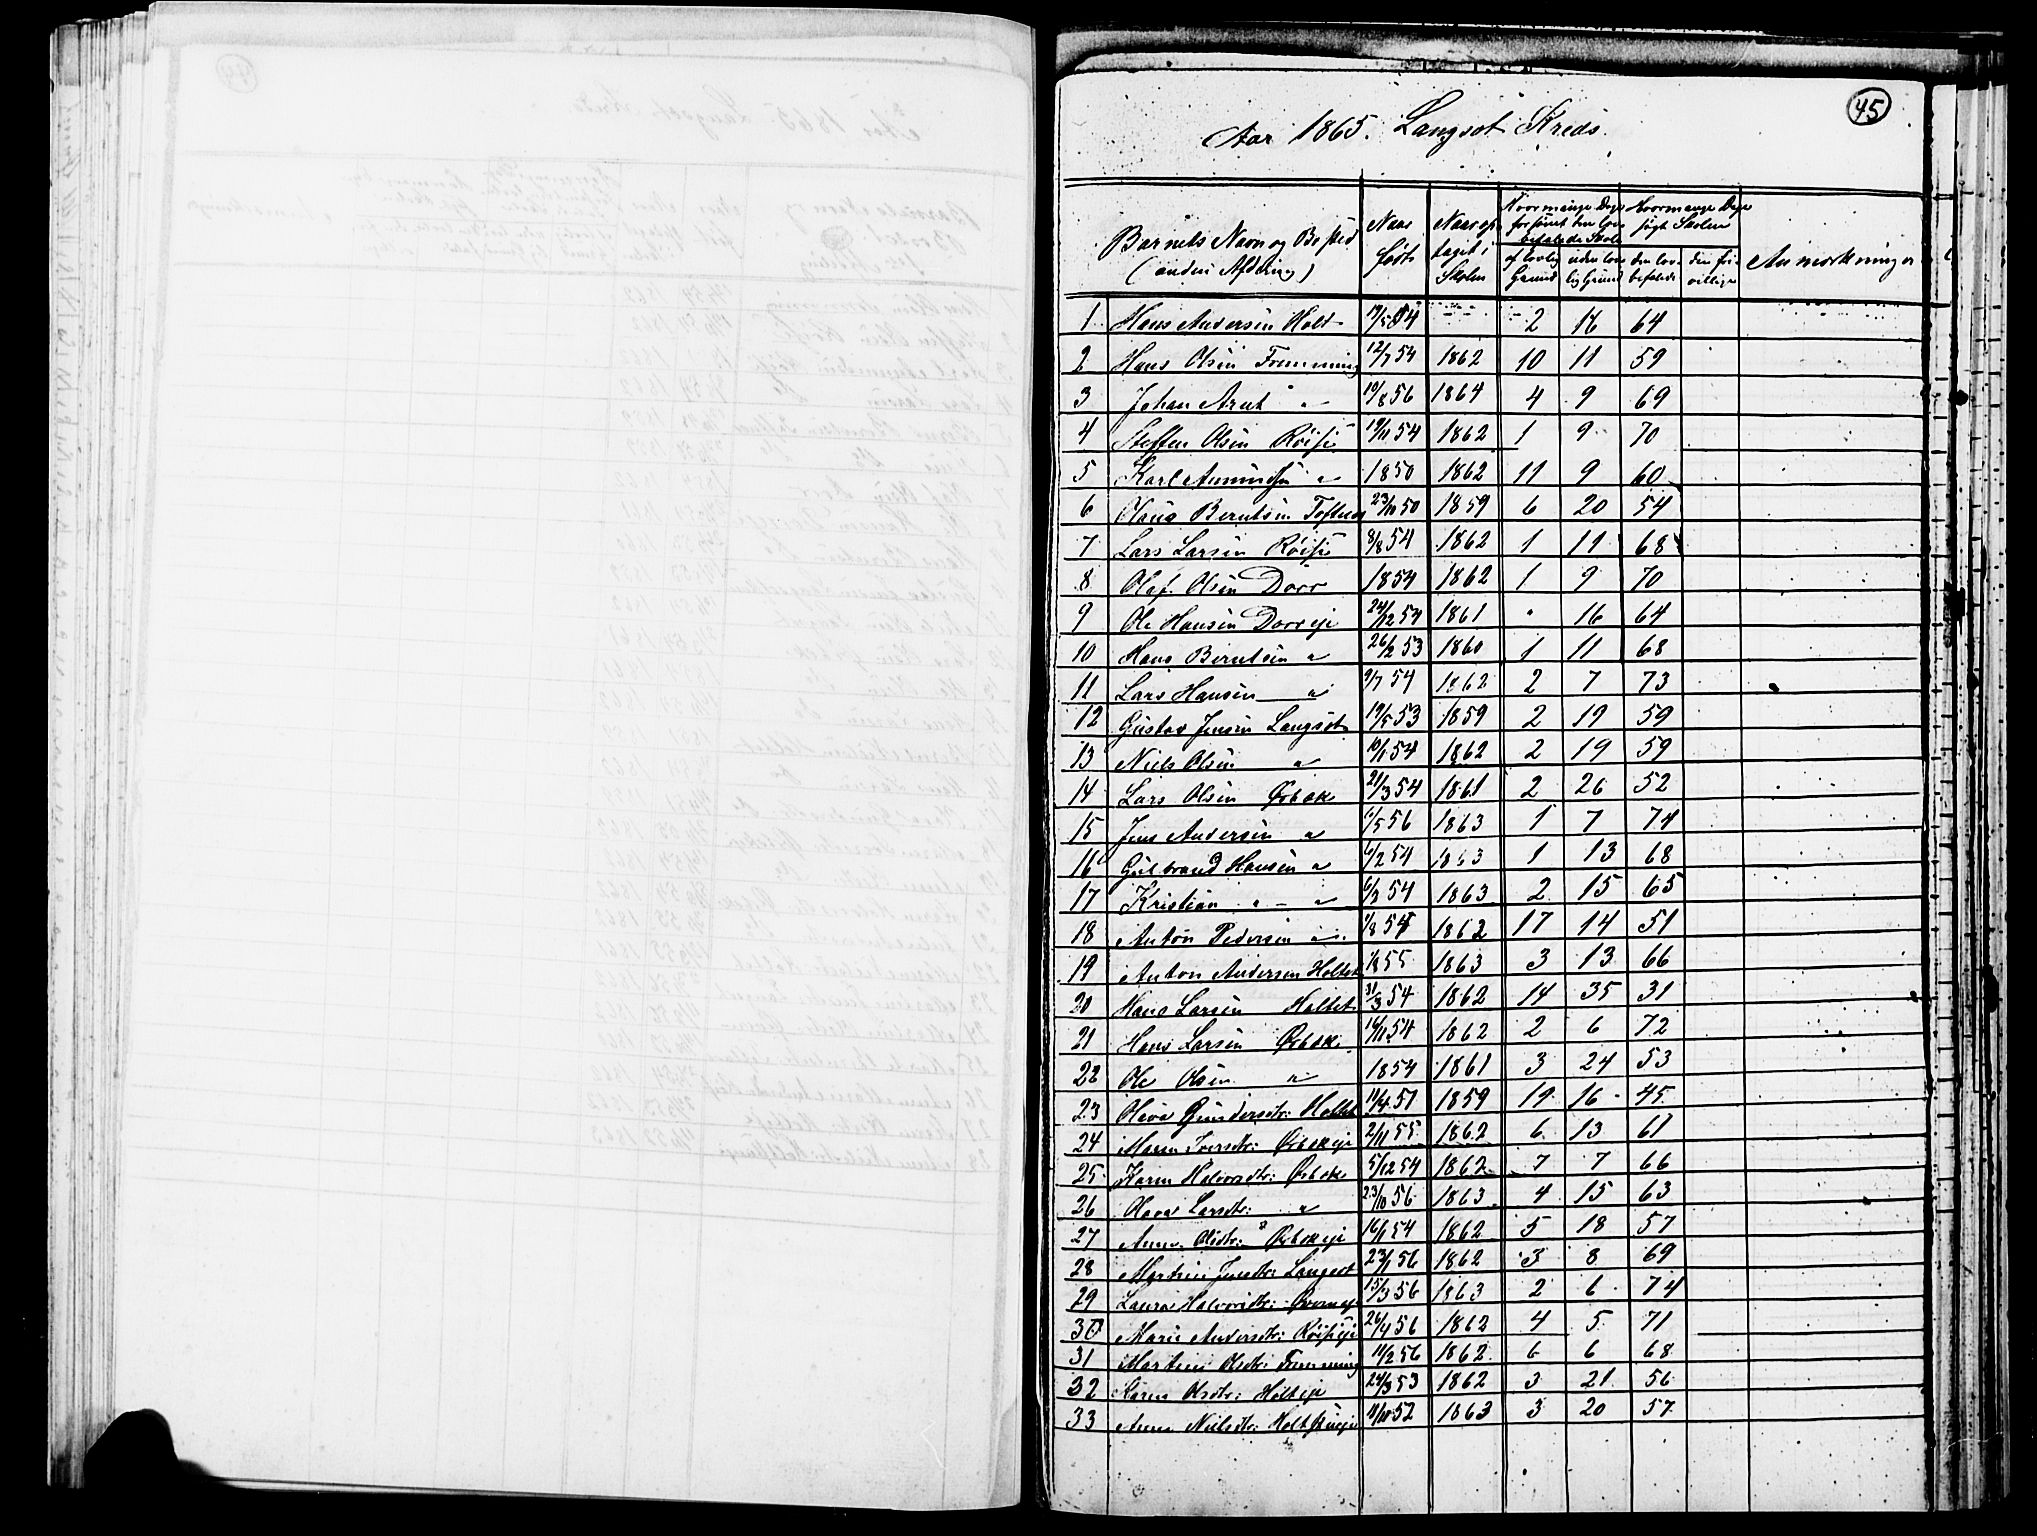 45
Aar 1865. Langsæt Kreds.
Barnets Navn og Bosted (anden Afdeling) | Naar født | Naar optaget i Skolen | Hvormange Dage forsømt den lovbefalede Skole | Hvormange Dage søgt Skolen | Anmærkninger
af lovlig Grund | uden lovlig Grund | den lovbefalede | den frivillige
1 Hans Andersen Holt 54 2 16 64
2 Hans Olsen Fremming 12/7 54 1862 10 11 59
3 Johan Arnt " 10/8 56 1864 4 9 69
4 Steffen Olsen Røise 19/11 54 1862 1 9 70
5 Karl Amundsen " 1850 1862 11 9 60
6 Olaus Berntsen Toftner 23/10 50 1859 6 20 54
7 Lars Larsen Røise 8/8 54 1862 1 11 68
8 Olaf Olsen Dorr 1854 1862 1 9 70
9 Ole Hansen Dorreje 24/12 54 1861 " 16 64
10 Hans Berntsen " 26/2 53 1860 1 11 68
11 Lars Hansen " 9/7 54 1862 2 7 73
12 Gustav Jensen Langsæt 19/5 53 1859 2 19 59
13 Niels Olsen " 10/1 54 1862 2 19 59
14 Lars Olsen Ørbæk 21/3 54 1861 2 26 52
15 Jens Andersen " 1/5 56 1863 1 7 74
16 Gulbrand Hansen " 54 1863 1 13 68
17 Kristian " - " 54 1863 2 15 65
18 Anton Pedersen " 1/8 54 1862 17 14 51
19 Anton Andersen Holtet 55 1863 3 13 66
20 Hans Larsen Holtet 31/3 54 1862 14 35 31
21 Hans Larsen Ørbæk 16/11 54 1862 2 6 72
22 Ole Olsen " 1854 1861 3 24 53
23 Olava Gundersdtr: Holtet 11/4 51 1859 19 16 45
24 Maren Iversdtr: Ørbækeje 2/11 55 1862 6 13 61
25 Karen Halvorsdtr: Ørbæk 5/12 54 1862 7 7 66
26 Olava Larsdtr: " 23/10 56 1863 4 15 63
27 Anne Olsdtr: Ørbækeje 16/1 54 1862 5 18 57
28 Martine Jensdtr: Langsæt 23/1 56 1862 3 8 69
29 Laura Halvorsdtr: 15/3 56 1863 2 6 74
30 Marie Andersdtr: Røiseeje 26/4 56 1862 4 5 71
31 Martine Olsdtr: Fremming 11/2 56 1862 6 6 68
32 Karen Olsdtr: Holteje 24/3 53 1862 3 21 56
33 Anne Nielsdtr: 11/10 52 1863 3 20 57